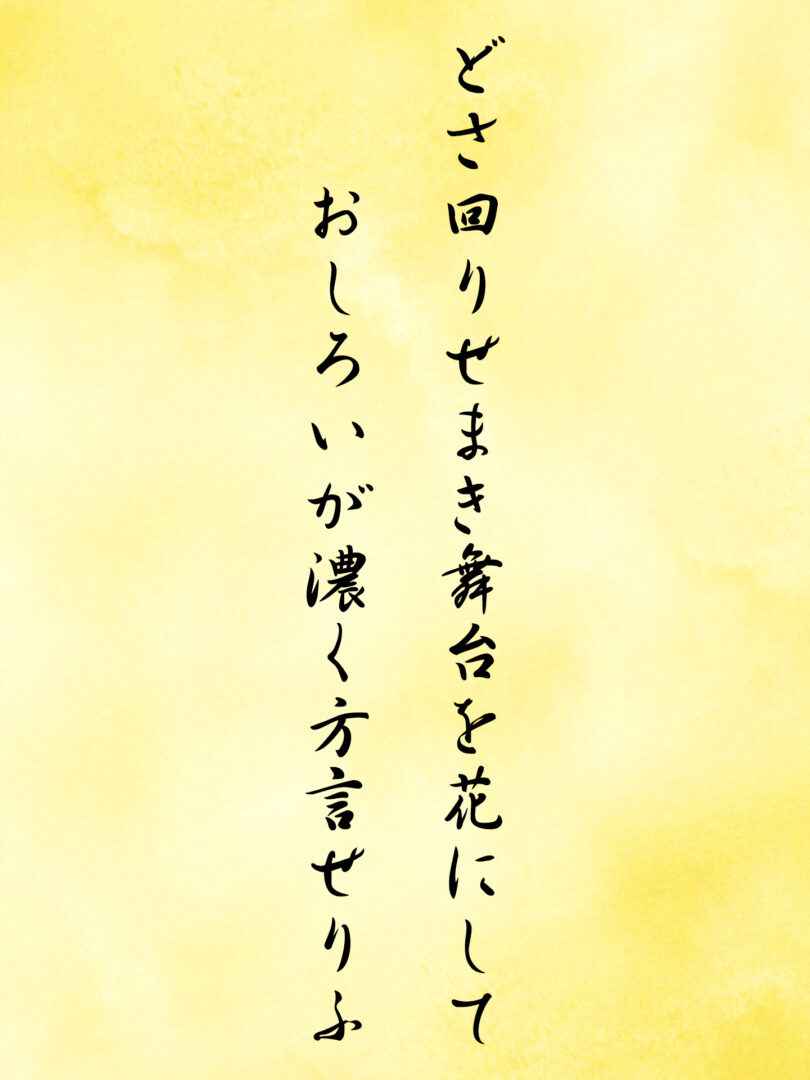 どさ回りせまき舞台を花にして
おしろいが濃く方言せりふ